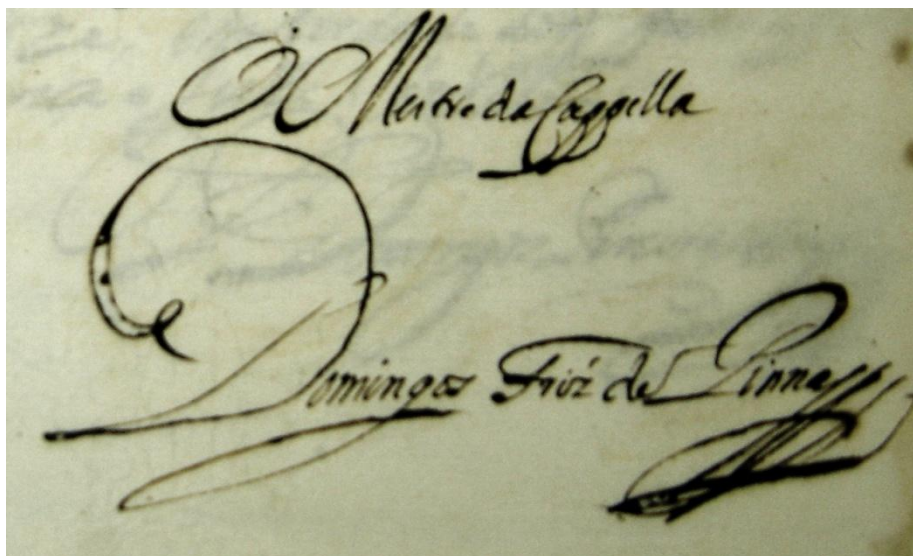 O Mestre da Cappella
Domingos Frõz de Pinna